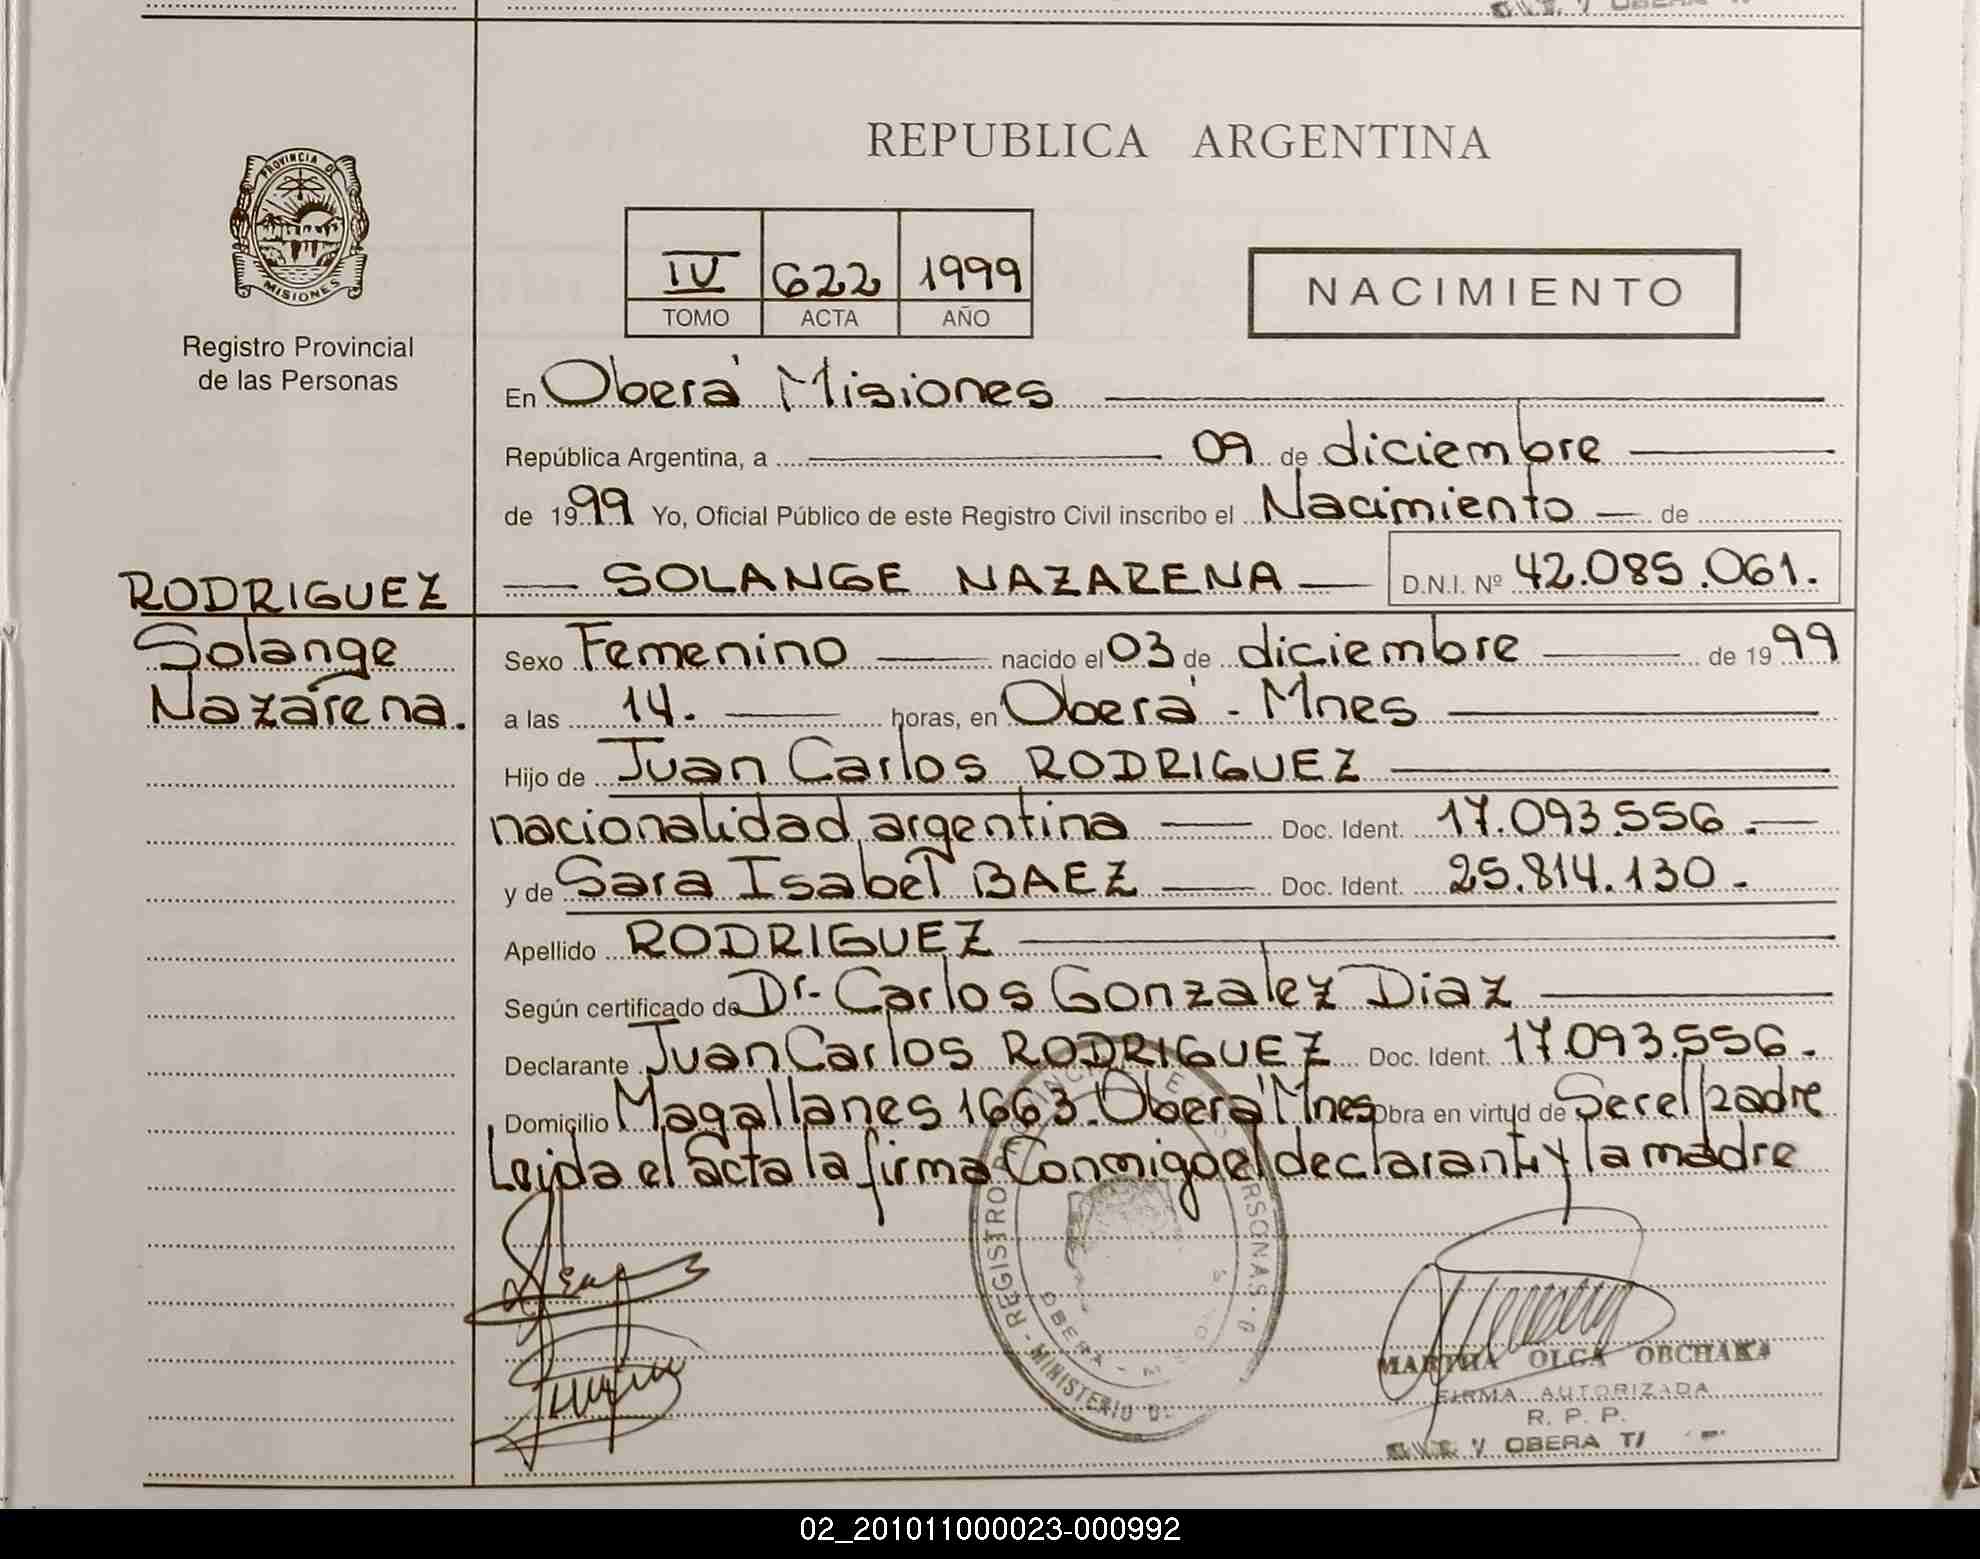 PROVINCIA DE
MISIONES
Registro Provincial
de las Personas
RODRIGUEZ
Solange
Nazarena.
REPUBLICA ARGENTINA
IV 622 1999
TOMO ACTA AÑO
NACIMIENTO
En Oberá Misiones
República Argentina, a 09 de diciembre
de 1999 Yo, Oficial Público de este Registro Civil inscribo el Nacimiento de
SOLANGE NAZARENA D.N.I. Nº 42.085.061.
Sexo Femenino nacido el 03 de diciembre de 1999
a las 14. horas, en Oberá - Mnes
Hijo de Juan Carlos RODRIGUEZ
nacionalidad argentina Doc. Ident. 17.093.556.
y de Sara Isabel BAEZ Doc. Ident. 25.814.130.
Apellido RODRIGUEZ
Según certificado de Dr. Carlos Gonzalez Diaz
Declarante Juan Carlos RODRIGUEZ Doc. Ident. 17.093.556.
Domicilio Magallanes 1663. Oberá Mnes Obra en virtud de Ser el padre
Leida el acta la firma Conmigo el declarante y la madre
REGISTRO
MINISTERIO
OBERA
MARTHA OLGA OBCHAKA
FIRMA AUTORIZADA
R. P. P.
V OBERA
02_201011000023-000992